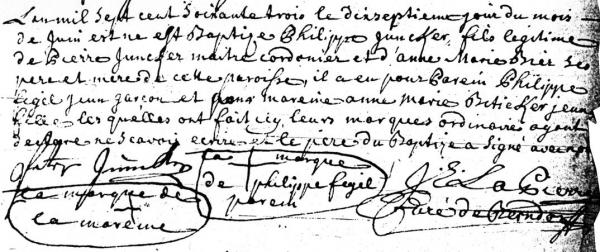 L'an mil sept cent soixante trois le dixseptieme jour du mois
de Juin est ne est Baptize Philippe Juncker, fils legitime
de Pierre Juncker maitre cordonier et d'anne Marie Bier ses
pere et mere de cette paroisse, il a eu pour Parein Philippe
fegel jeun garçon et pour mareine anne Marie jeune
fille lesquelles ont fait icy leurs marques ordinaires ayant
declare ne scavoir ecrire et le pere du Baptize a signé avec nous
peter Juncker la marque
de philippe fegel
parein
la marque de
la mareine
J: E: La Pierre
Curé de